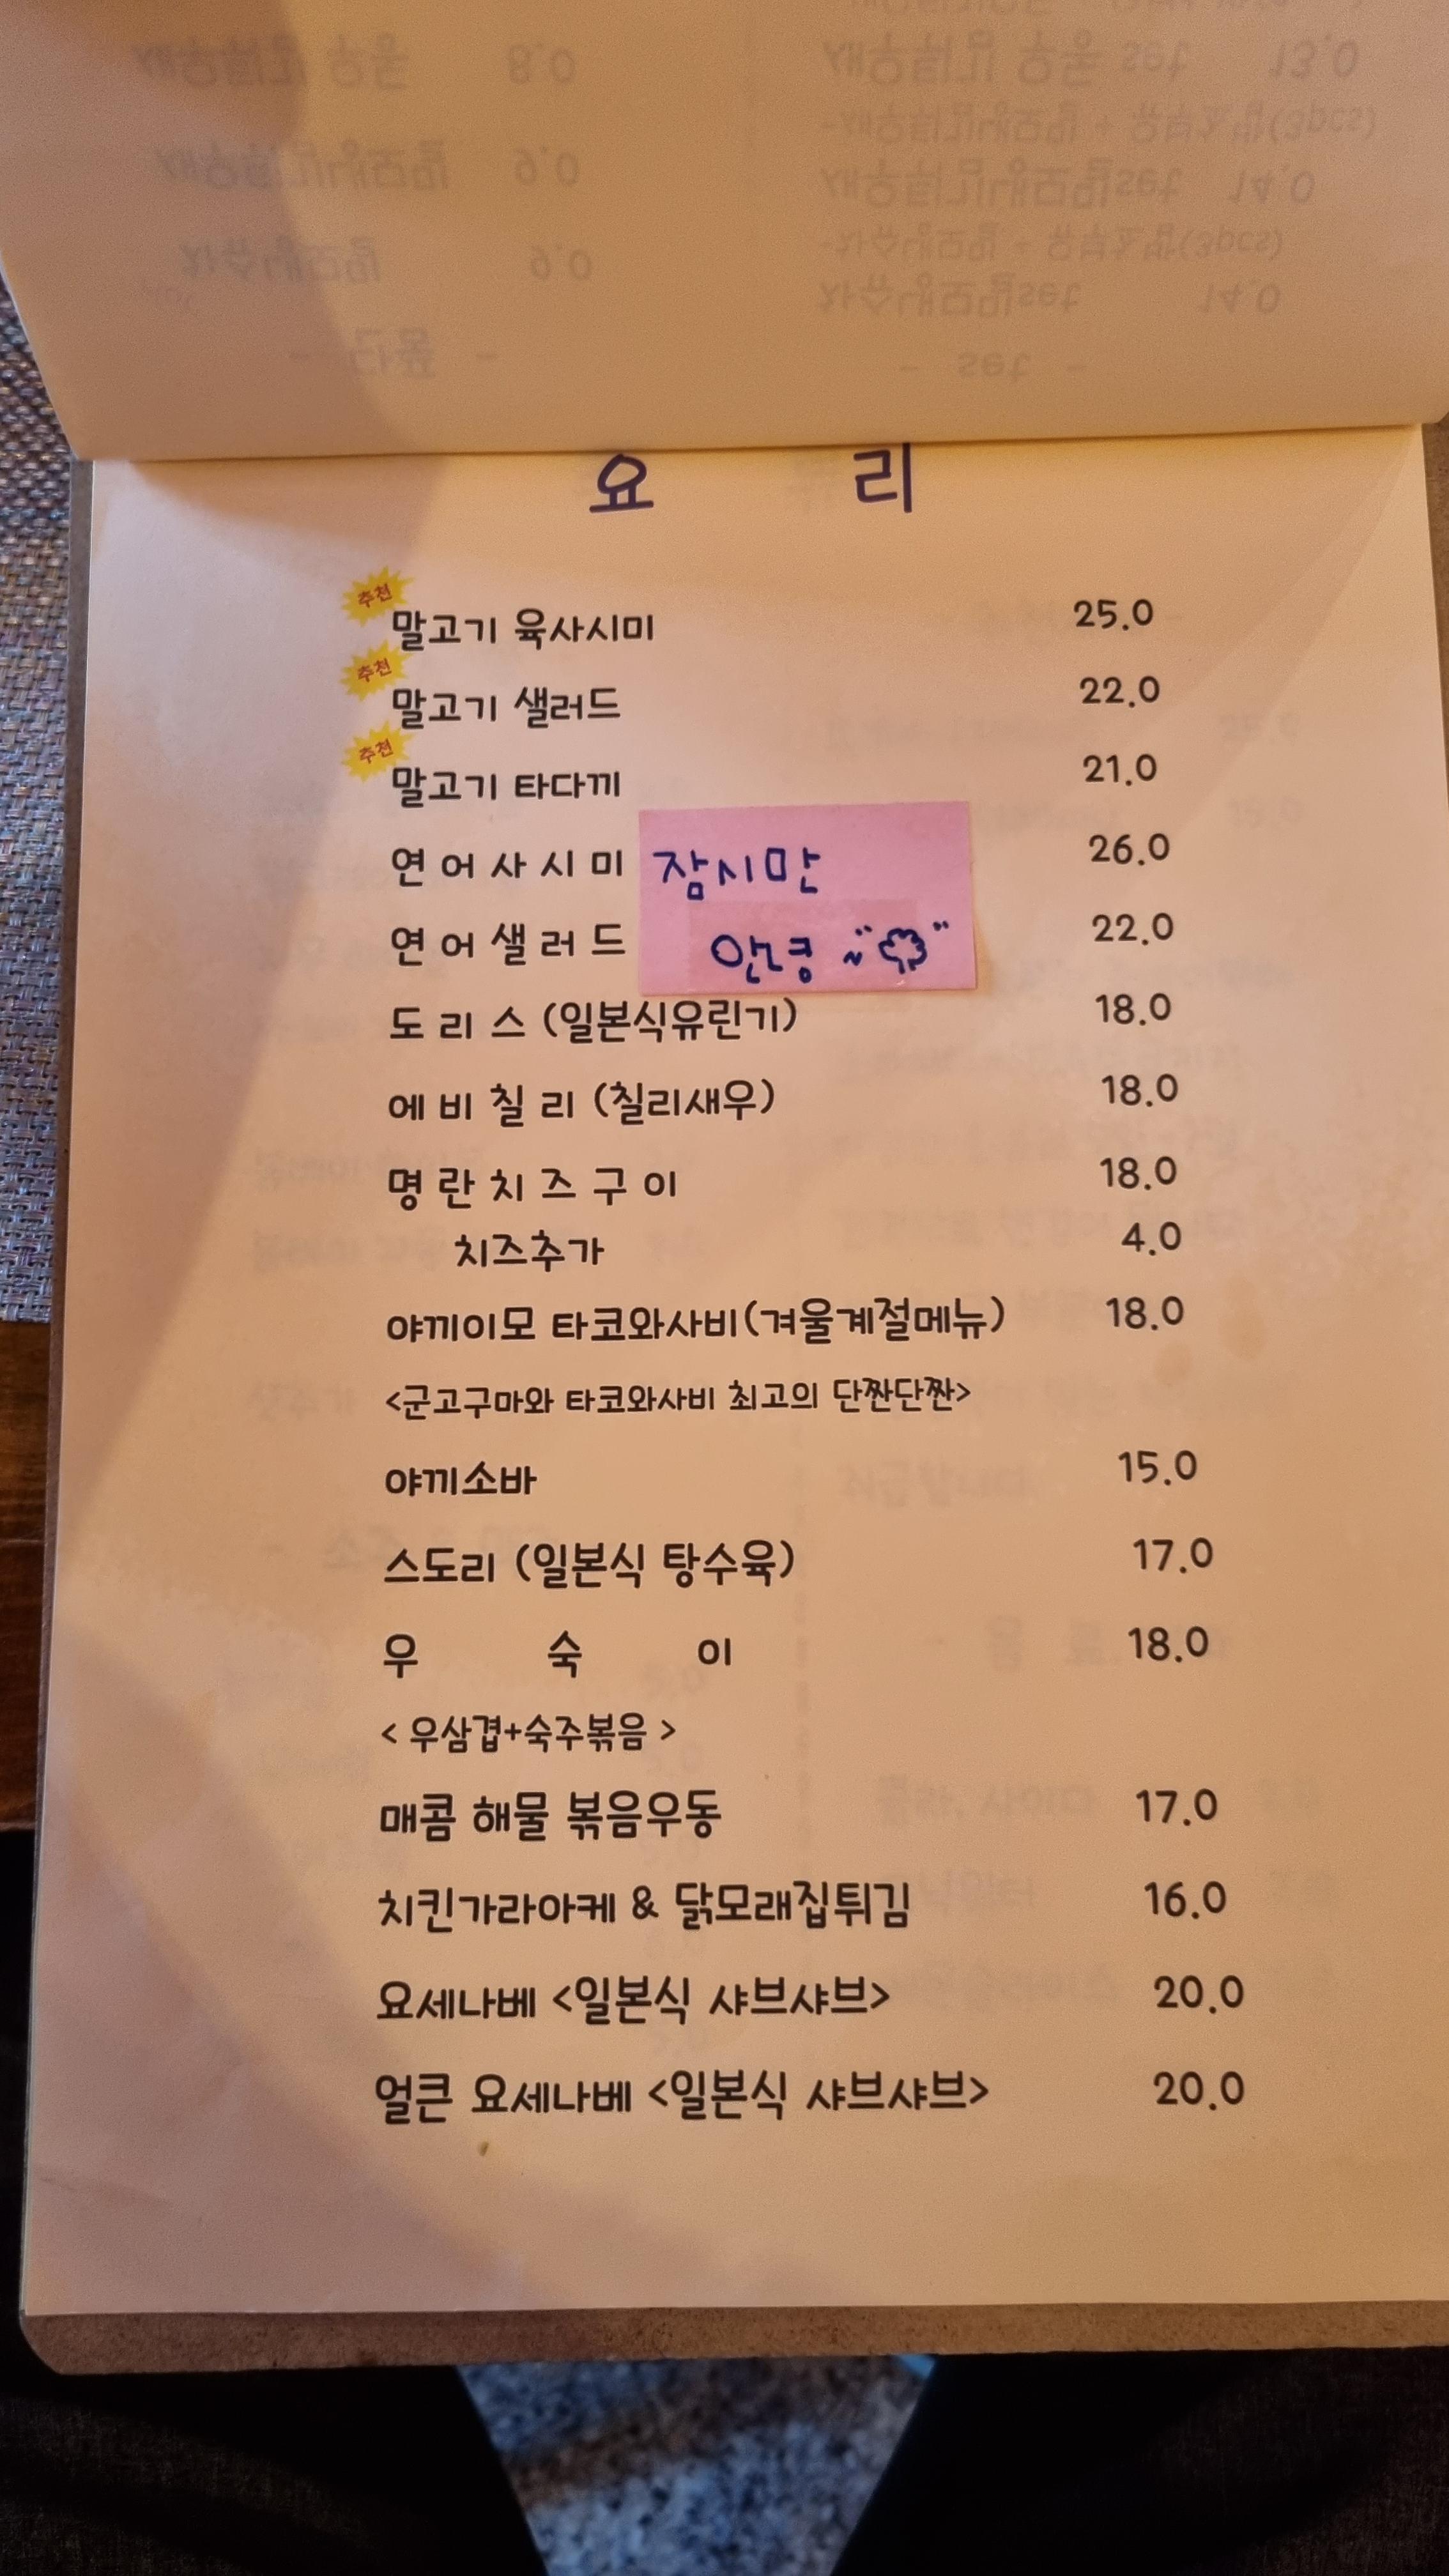 요 리
추천
말고기 육사시미 25.0
추천
말고기 샐러드 22.0
추천
말고기 타다끼 21.0
연 어 사 시 미 26.0
잠시만
연 어 샐 러 드 22.0
안녕 ~
도 리 스 (일본식유린기) 18.0
에 비 칠 리 (칠리새우) 18.0
명 란 치 즈 구 이 18.0
치즈추가 4.0
야끼이모 타코와사비(겨울계절메뉴) 18.0
<군고구마와 타코와사비 최고의 단짠단짠>
야끼소바 15.0
스도리 (일본식 탕수육) 17.0
우 숙 이 18.0
< 우삼겹+숙주볶음 >
매콤 해물 볶음우동 17.0
치킨가라아케 & 닭모래집튀김 16.0
요세나베 <일본식 샤브샤브> 20.0
얼큰 요세나베 <일본식 샤브샤브> 20.0